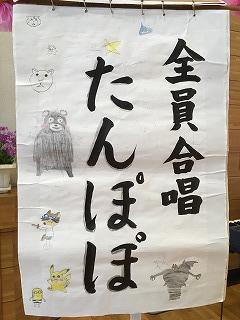 全員合唱
たんぽぽ